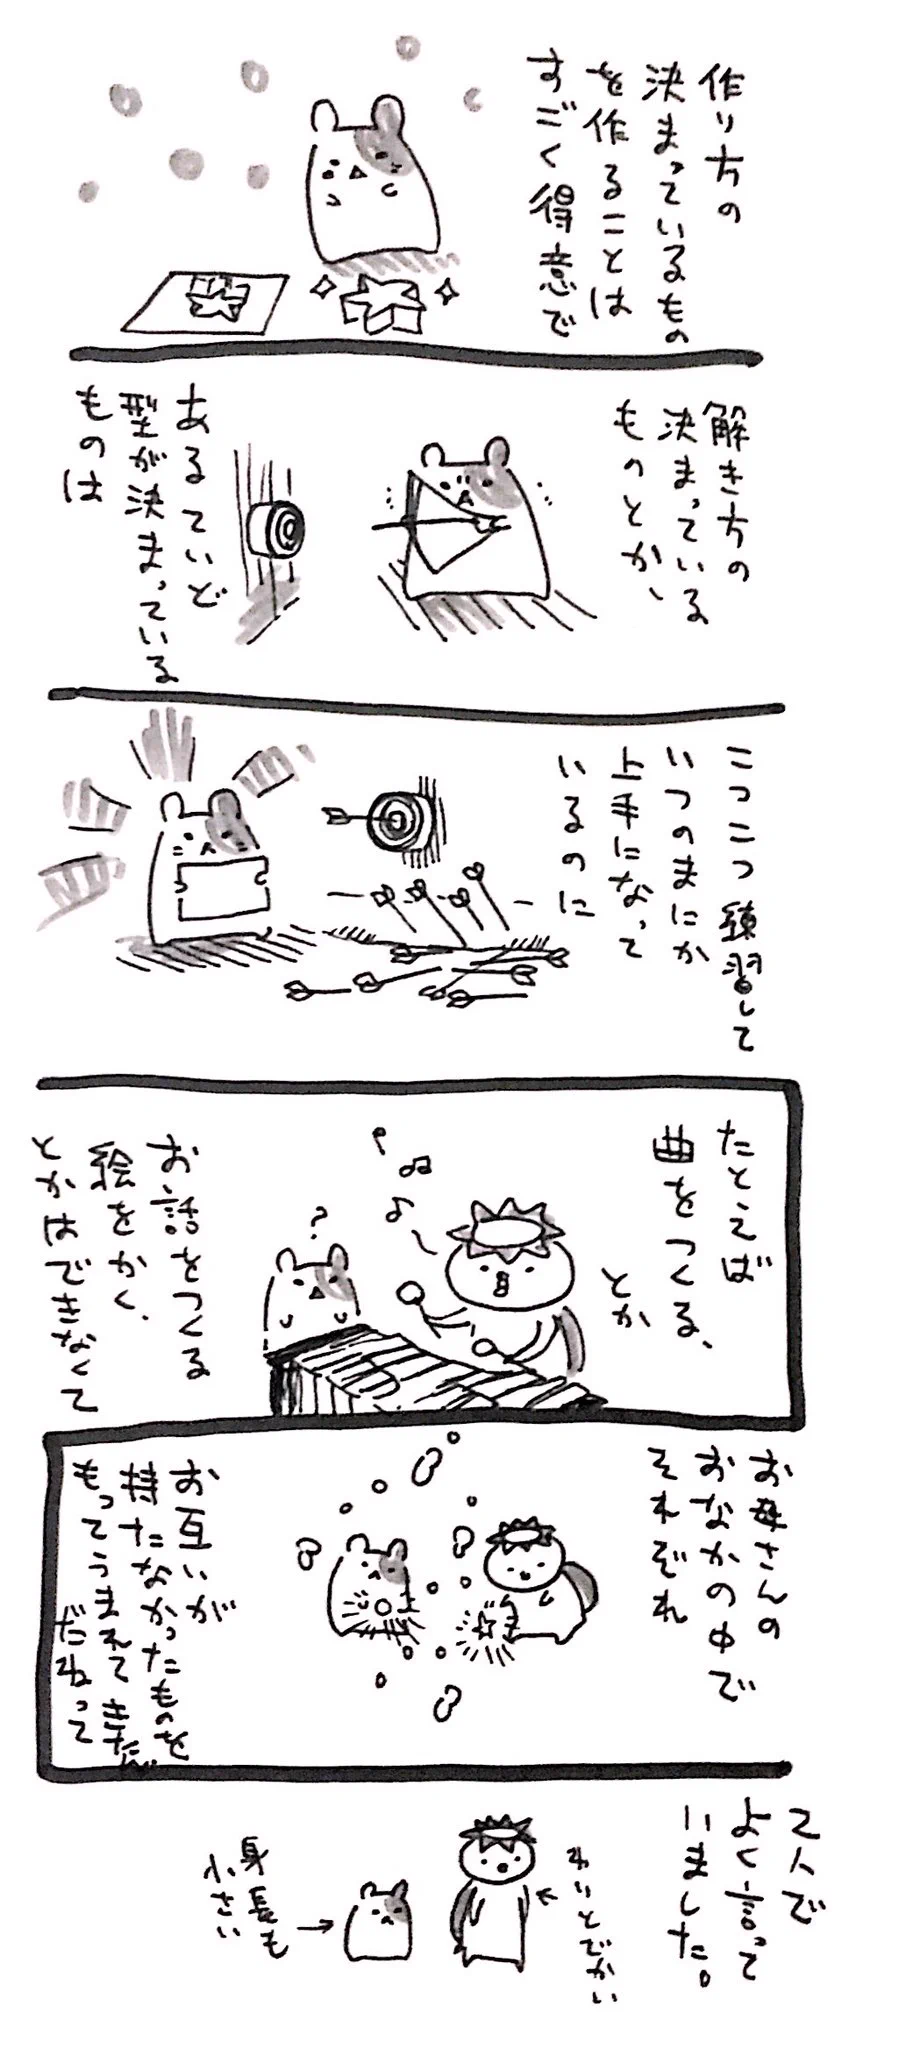 作り方の
決まっているもの
を作ることは
すごく得意で
解き方の
決まっている
ものとか、
あるていど
型が決まっている
ものは
こつこつ練習して
いつのまにか
上手になって
いるのに
たとえば
曲をつくる、
とか
?
お話をつくる
絵をかく、
とかはできなくて
お母さんの
おなかの中で
それぞれ
お互いが
持たなかったものを
もってうまれてきたん
だねって
2人で
よく言って
いました。
わりとでかい
身長も
小さい